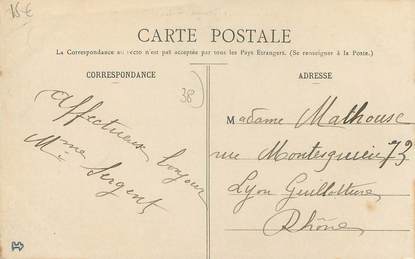 15€
CARTE POSTALE
La Correspondance au recto n'est pas acceptée par tous les Pays Etrangers. (Se renseigner à la Poste.)
CORRESPONDANCE
38
Affectueux bonjour
Mme Sergent
ADRESSE
Madame Malhouse
rue Montesquieu 73
Lyon Guillotière
Rhône